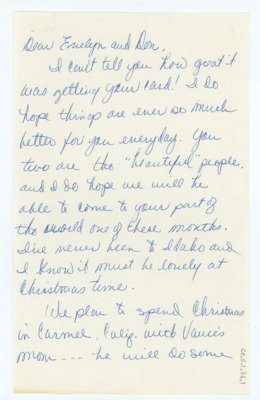 Dear Evelyn and Don,
I can't tell you how great it
was getting your card! I do
hope things are ever so much
better for you everyday. You
two are the "beautiful" people.
and I do hope we will be
able to come to your part of
the world one of these months.
I've never been to Idaho and
I know it must be lovely at
Christmas time.
We plan to spend Christmas
in Carmel, Calif. with Vance's
Mom --- he will do some